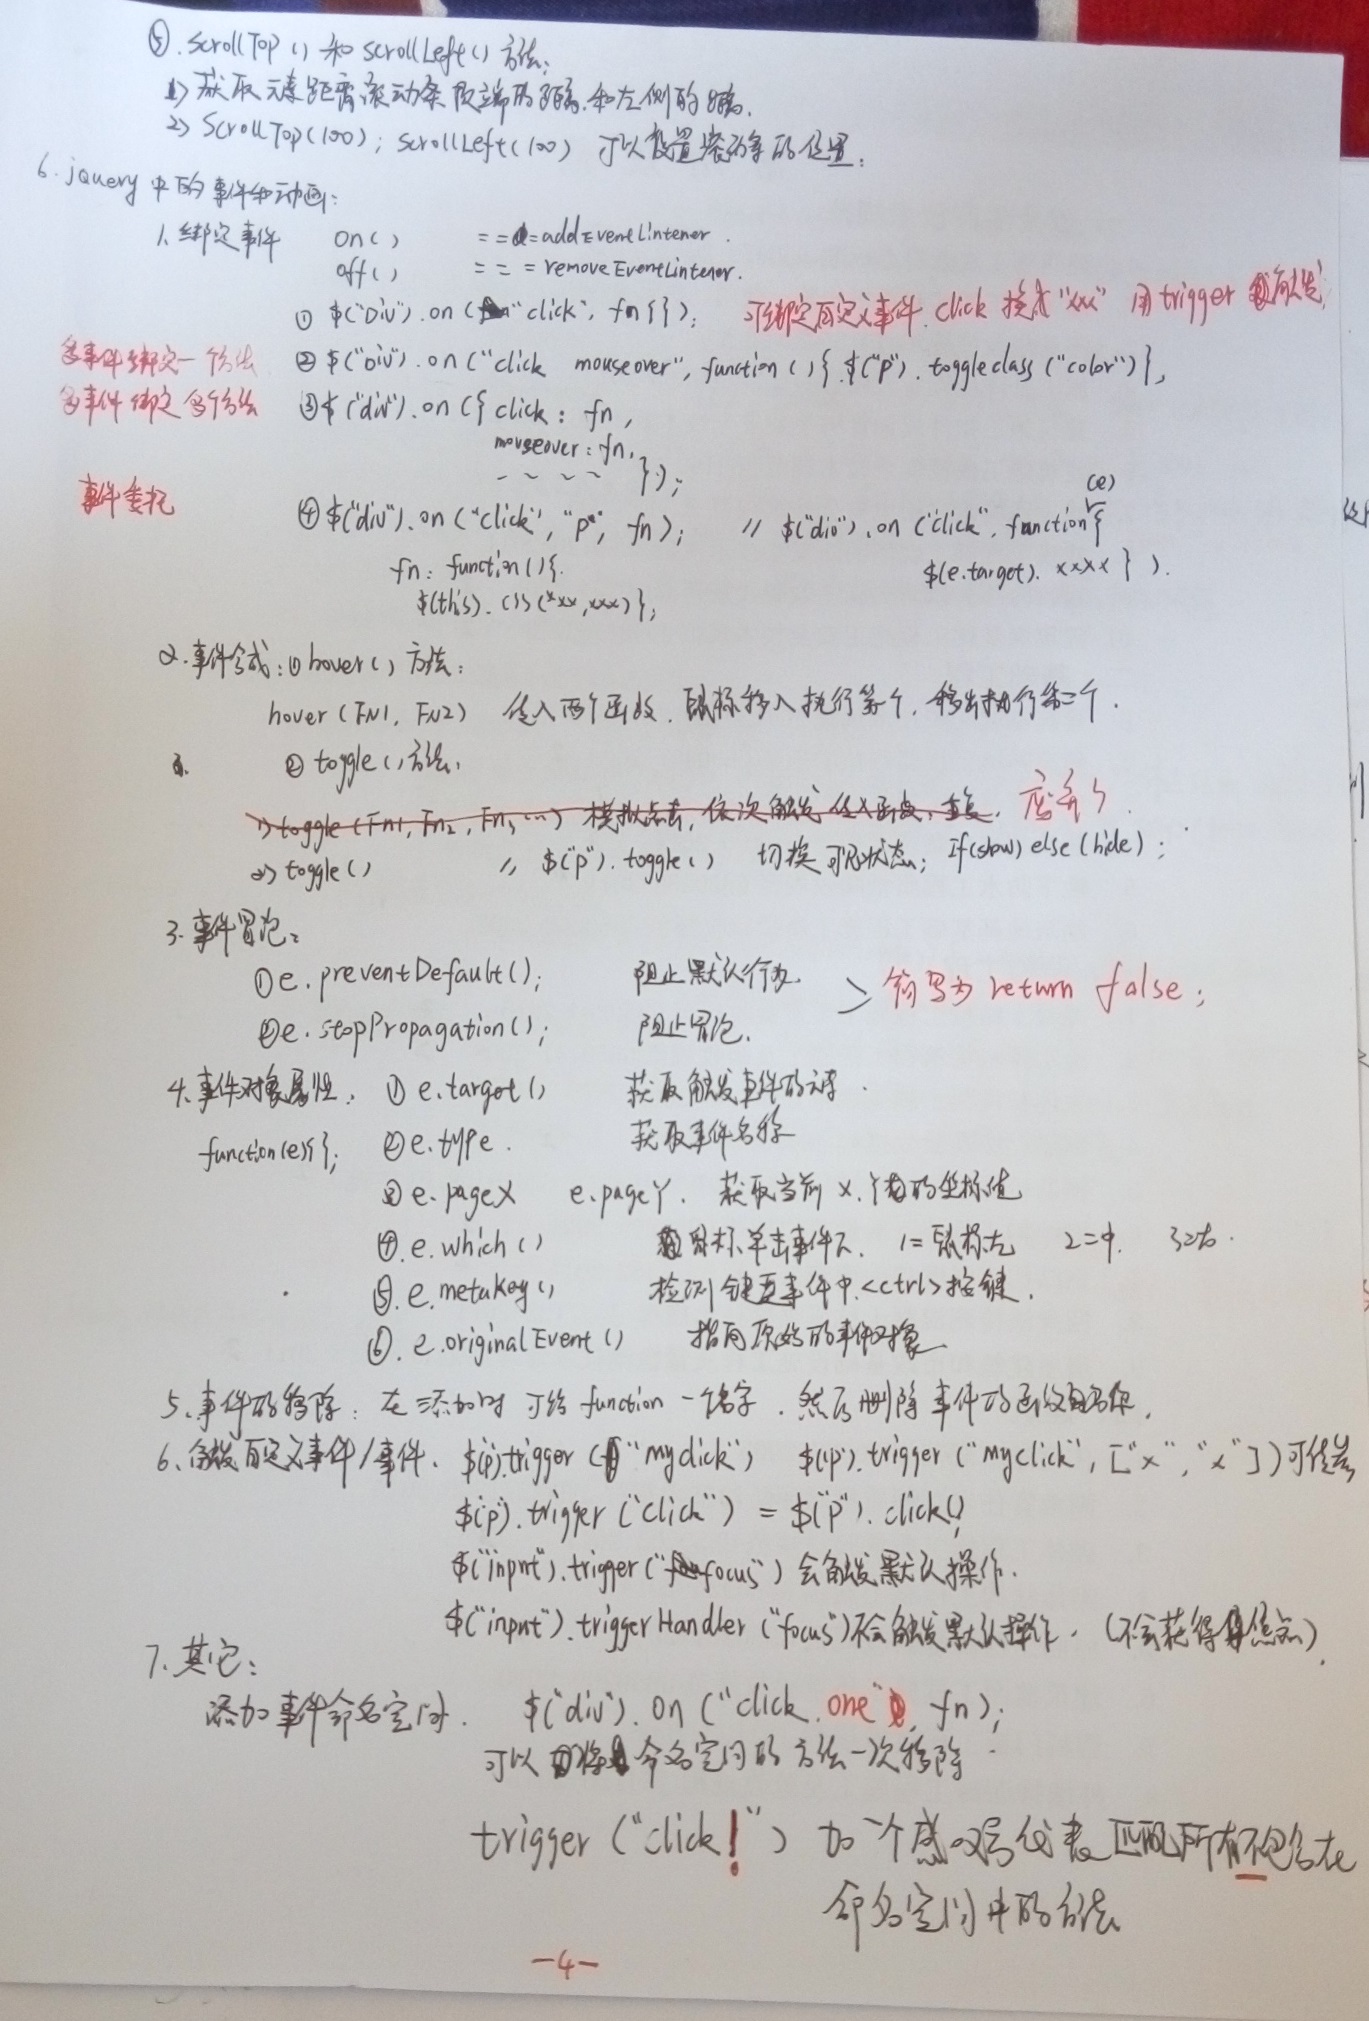 ⑤.scrollTop() 和 scrollLeft() 方法:
1> 获取元素距离滚动条顶端的距离.和左侧的距离.
2> ScrollTop(100); scrollLeft(100) 可以设置滚动条的位置;
6.jquery 中的事件和动画:
1.绑定事件 on() ===addEventLintener.
off() ===removeEventLintener.
① $("Div").on("click", fn{}); 可绑定自定义事件.click 换成"xxx" 用 trigger 触发
多事件绑定一个方法 ② $("Div").on("click mouseover", function(){.$("p").toggleclass("color")},
多事件绑定多个方法 ③$("div").on({click: fn,
mouseover: fn,
~ ~ ~ ~ });
事件委托 ④$("div").on("click", "p", fn); // $("div").on("click", function(e){
fn: function(){. $(e.target). xxxx }).
$(this).css(xxx,xxx)};
2.事件合成:①hover()方法:
hover(FN1, FN2) 传入两个函数.鼠标移入执行第一个,移出执行第二个.
②toggle()方法.
1>toggle(Fn1, Fn2, Fn3 ...) 模拟点击,依次触发传入函数,重复. 废弃了.
2> toggle() // $("p").toggle() 切换可见状态; If(show) else(hide);
3.事件冒泡:
①e.preventDefault(); 阻止默认行为. > 简写为 return false;
②e.stopPropagation(); 阻止冒泡.
4.事件对象属性: ① e.target() 获取触发事件的元素.
function(e){}; ②e.type. 获取事件名称
③ e.pageX e.pageY. 获取当前 X.Y的坐标值
④.e.which() 鼠标单击事件下. 1=鼠标左 2=中. 3=右.
⑤.e.metaKey() 检测键盘事件中.<ctrl>按键.
⑥.e.originalEvent() 指向原始的事件对象
5.事件的移除: 在添加时可给function一个名字.然后删除事件的函数名称.
6.触发自定义事件/事件. $(p).trigger("myclick") $("p").trigger("myclick", ["x","x"])可传参
$("p").trigger("click") = $("p").click();
$("input").trigger("focus") 会触发默认操作.
$("input").triggerHandler("focus")不会触发默认操作.(不会获得焦点).
7.其它:
添加事件命名空间. $("div").on("click.one", fn);
可以将命名空间的方法一次移除.
trigger("click!") 加一个感叹号代表匹配所有不包含在
命名空间中的方法
-4-